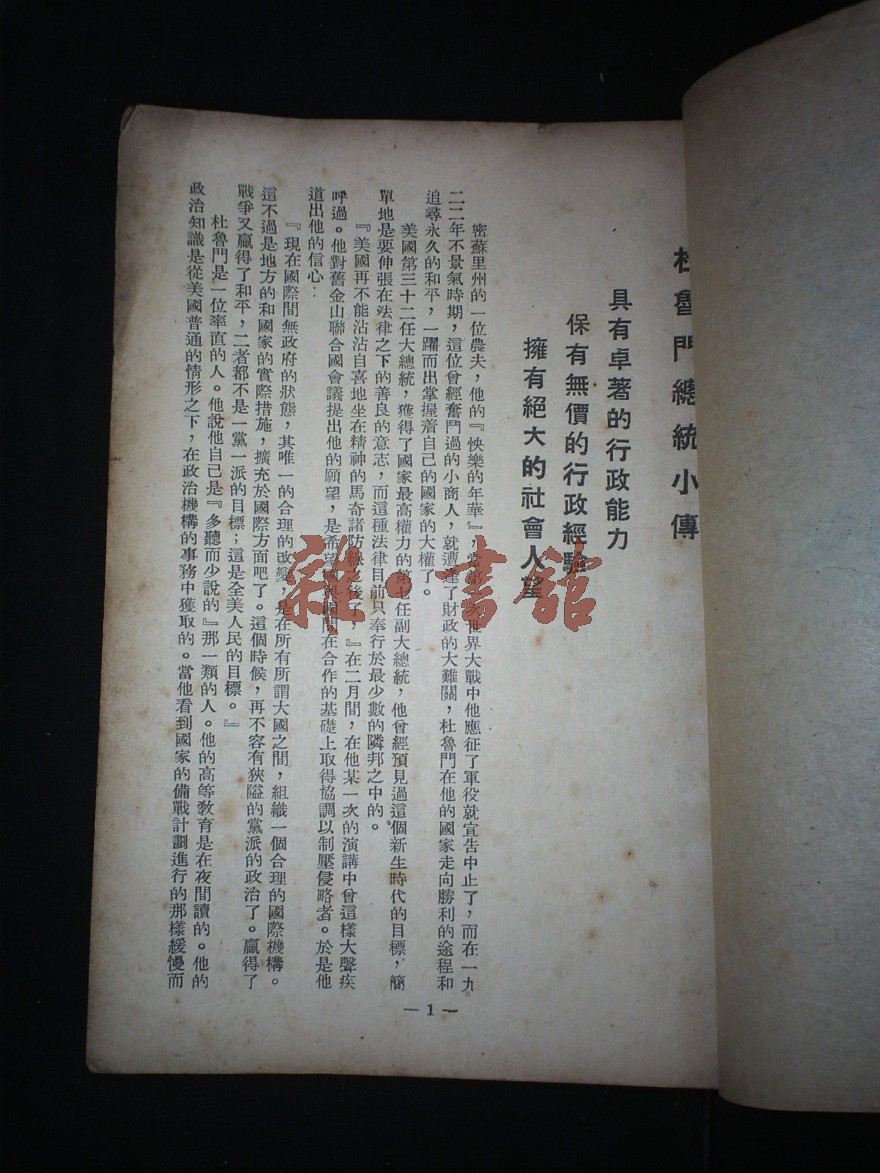 杜魯門總統小傳
具有卓著的行政能力
保有無價的行政經驗
擁有絕大的社會人望
密蘇里州的一位農夫，他的『快樂的年華』，當第世界大戰中他應征了軍役就宣告中止了，而在一九
二二年不景氣時期，這位曾經奮鬥過的小商人，就遭逢了財政的大難關，杜魯門在他的國家走向勝利的途程和
追尋永久的和平，一躍而出掌握着自己的國家的大權了。
美國第三十二任大總統，獲得了國家最高權力的第七任副大總統，他曾經預見過這個新生時代的目標，簡
單地是要伸張在法律之下的善良的意志，而這種法律目前只奉行於最少數的隣邦之中的。
『美國再不能沾沾自喜地坐在精神的馬奇諾防線之後了，』在二月間，在他某一次的演講中曾這樣大聲疾
呼過。他對舊金山聯合國會議提出他的願望，是希望國與國間在合作的基礎上取得協調以制壓侵略者。於是他
道出他的信心：
『現在國際間無政府的狀態，其唯一的合理的改變，是在所有所謂大國之間，組織一個合理的國際機構。
這不過是地方的和國家的實際措施，擴充於國際方面吧了。這個時候，再不容有狹隘的黨派的政治了。贏得了
戰爭又贏得了和平，二者都不是一黨一派的目標；這是全美人民的目標。』
杜魯門是一位率直的人。他說他自己是『多聽而少說的』那一類的人。他的高等教育是在夜間讀的。他的
政治知識是從美國普通的情形之下，在政治機構的事務中獲取的。當他看到國家的備戰計劃進行的那樣緩慢而
— 1 —
雜·書館